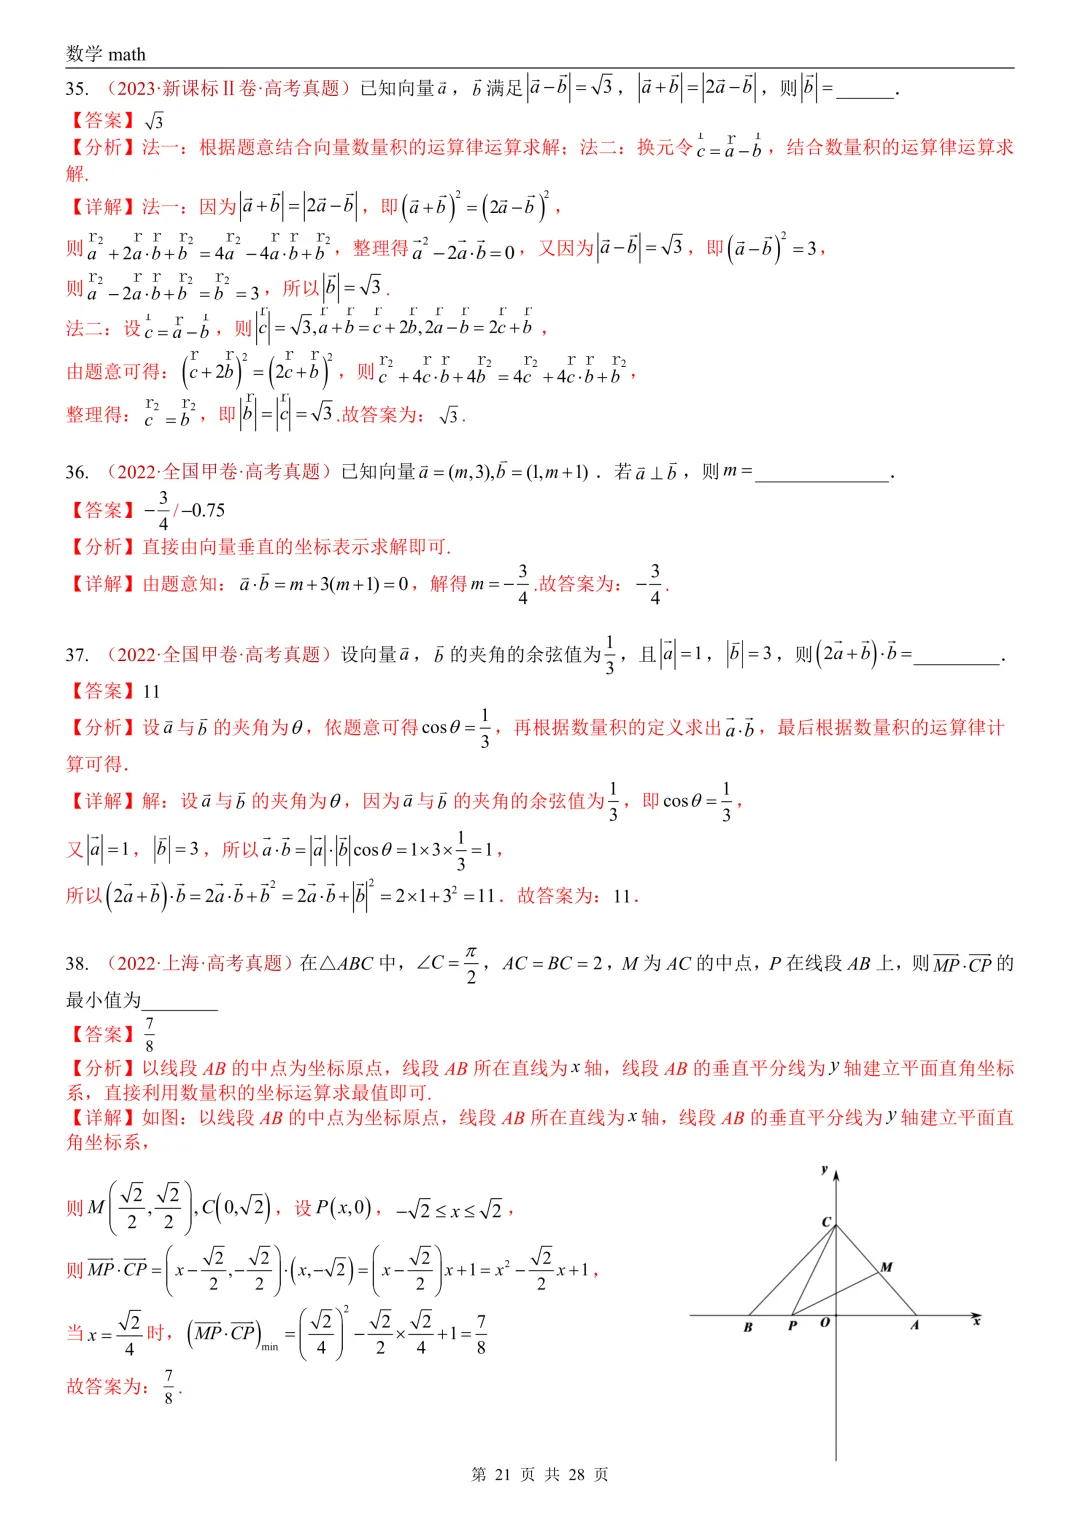 数学 math
35. （2023·新课标Ⅱ卷·高考真题）已知向量 $\vec{a}$，$\vec{b}$ 满足 $|\vec{a}-\vec{b}|=\sqrt{3}$，$|\vec{a}+\vec{b}|=|2\vec{a}-\vec{b}|$，则 $|\vec{b}|=$______．
【答案】$\sqrt{3}$
【分析】法一：根据题意结合向量数量积的运算律运算求解；法二：换元令 $\vec{c}=\vec{a}-\vec{b}$，结合数量积的运算律运算求
解.
【详解】法一：因为 $|\vec{a}+\vec{b}|=|2\vec{a}-\vec{b}|$，即 $(\vec{a}+\vec{b})^2=(2\vec{a}-\vec{b})^2$，
则 $\vec{a}^2+2\vec{a}\cdot\vec{b}+\vec{b}^2=4\vec{a}^2-4\vec{a}\cdot\vec{b}+\vec{b}^2$，整理得 $\vec{a}^2-2\vec{a}\cdot\vec{b}=0$，又因为 $|\vec{a}-\vec{b}|=\sqrt{3}$，即 $(\vec{a}-\vec{b})^2=3$，
则 $\vec{a}^2-2\vec{a}\cdot\vec{b}+\vec{b}^2=\vec{b}^2=3$，所以 $|\vec{b}|=\sqrt{3}$.
法二：设 $\vec{c}=\vec{a}-\vec{b}$，则 $|\vec{c}|=\sqrt{3},\vec{a}+\vec{b}=\vec{c}+2\vec{b},2\vec{a}-\vec{b}=2\vec{c}+\vec{b}$，
由题意可得：$(\vec{c}+2\vec{b})^2=(2\vec{c}+\vec{b})^2$，则 $\vec{c}^2+4\vec{c}\cdot\vec{b}+4\vec{b}^2=4\vec{c}^2+4\vec{c}\cdot\vec{b}+\vec{b}^2$，
整理得：$\vec{c}^2=\vec{b}^2$，即 $|\vec{b}|=|\vec{c}|=\sqrt{3}$.故答案为：$\sqrt{3}$.
36. （2022·全国甲卷·高考真题）已知向量 $\vec{a}=(m,3),\vec{b}=(1,m+1)$．若 $\vec{a}\perp\vec{b}$，则 $m=$______________．
【答案】$-\frac{3}{4}$/−0.75
【分析】直接由向量垂直的坐标表示求解即可.
【详解】由题意知：$\vec{a}\cdot\vec{b}=m+3(m+1)=0$，解得 $m=-\frac{3}{4}$.故答案为：$-\frac{3}{4}$.
37. （2022·全国甲卷·高考真题）设向量 $\vec{a}$，$\vec{b}$ 的夹角的余弦值为 $\frac{1}{3}$，且 $|\vec{a}|=1$，$|\vec{b}|=3$，则 $(2\vec{a}+\vec{b})\cdot\vec{b}=$_________．
【答案】11
【分析】设 $\vec{a}$ 与 $\vec{b}$ 的夹角为 $\theta$，依题意可得 $\cos\theta=\frac{1}{3}$，再根据数量积的定义求出 $\vec{a}\cdot\vec{b}$，最后根据数量积的运算律计
算可得．
【详解】解：设 $\vec{a}$ 与 $\vec{b}$ 的夹角为 $\theta$，因为 $\vec{a}$ 与 $\vec{b}$ 的夹角的余弦值为 $\frac{1}{3}$，即 $\cos\theta=\frac{1}{3}$，
又 $|\vec{a}|=1$，$|\vec{b}|=3$，所以 $\vec{a}\cdot\vec{b}=|\vec{a}|\cdot|\vec{b}|\cos\theta=1\times3\times\frac{1}{3}=1$，
所以 $(2\vec{a}+\vec{b})\cdot\vec{b}=2\vec{a}\cdot\vec{b}+\vec{b}^2=2\vec{a}\cdot\vec{b}+|\vec{b}|^2=2\times1+3^2=11$．故答案为：11．
38. （2022·上海·高考真题）在△ABC 中，$\angle C=\frac{\pi}{2}$，$AC=BC=2$，M 为 AC 的中点，P 在线段 AB 上，则 $\overrightarrow{MP}\cdot\overrightarrow{CP}$ 的
最小值为________
【答案】$\frac{7}{8}$
【分析】以线段 AB 的中点为坐标原点，线段 AB 所在直线为 x 轴，线段 AB 的垂直平分线为 y 轴建立平面直角坐标
系，直接利用数量积的坐标运算求最值即可.
【详解】如图：以线段 AB 的中点为坐标原点，线段 AB 所在直线为 x 轴，线段 AB 的垂直平分线为 y 轴建立平面直
角坐标系，
则 $M\left(\frac{\sqrt{2}}{2},\frac{\sqrt{2}}{2}\right),C(0,\sqrt{2})$，设 $P(x,0)$，$-\sqrt{2}\le x\le\sqrt{2}$，
则 $\overrightarrow{MP}\cdot\overrightarrow{CP}=\left(x-\frac{\sqrt{2}}{2},-\frac{\sqrt{2}}{2}\right)\cdot(x,-\sqrt{2})=\left(x-\frac{\sqrt{2}}{2}\right)x+1=x^2-\frac{\sqrt{2}}{2}x+1$，
当 $x=\frac{\sqrt{2}}{4}$ 时，$(\overrightarrow{MP}\cdot\overrightarrow{CP})_{\min}=\left(\frac{\sqrt{2}}{4}\right)^2-\frac{\sqrt{2}}{2}\times\frac{\sqrt{2}}{4}+1=\frac{7}{8}$
故答案为：$\frac{7}{8}$.
y
C
M
B P O A x
第 21 页 共 28 页